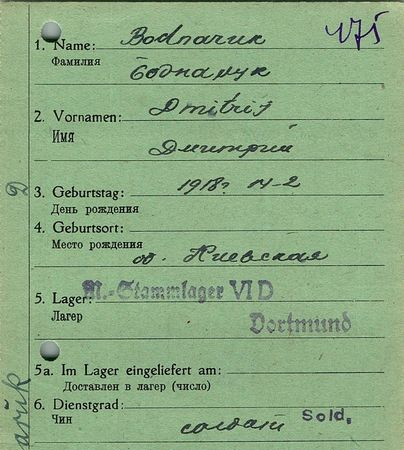 175
1. Name: Bodnariuk
Фамилия
Боднарук
2. Vornamen: Dmitrij
Имя
Дмитрий
3. Geburtstag: 1918г. 14-2
День рождения
4. Geburtsort:
Место рождения
об. Киевская
5. Lager: M.-Stammlager VI D
Лагер
Dortmund
5a. Im Lager eingeliefert am:
Доставлен в лагер (число)
6. Dienstgrad: Sold.
Чин
солдат